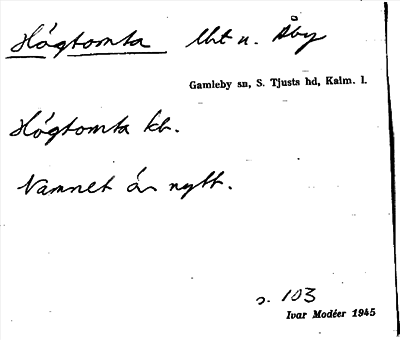 Högtomta lht u. Åby
Gamleby sn, S. Tjusts hd, Kalm. l.
Högtomta kb.
Namnet är nytt.
s. 103
Ivar Modéer 1945